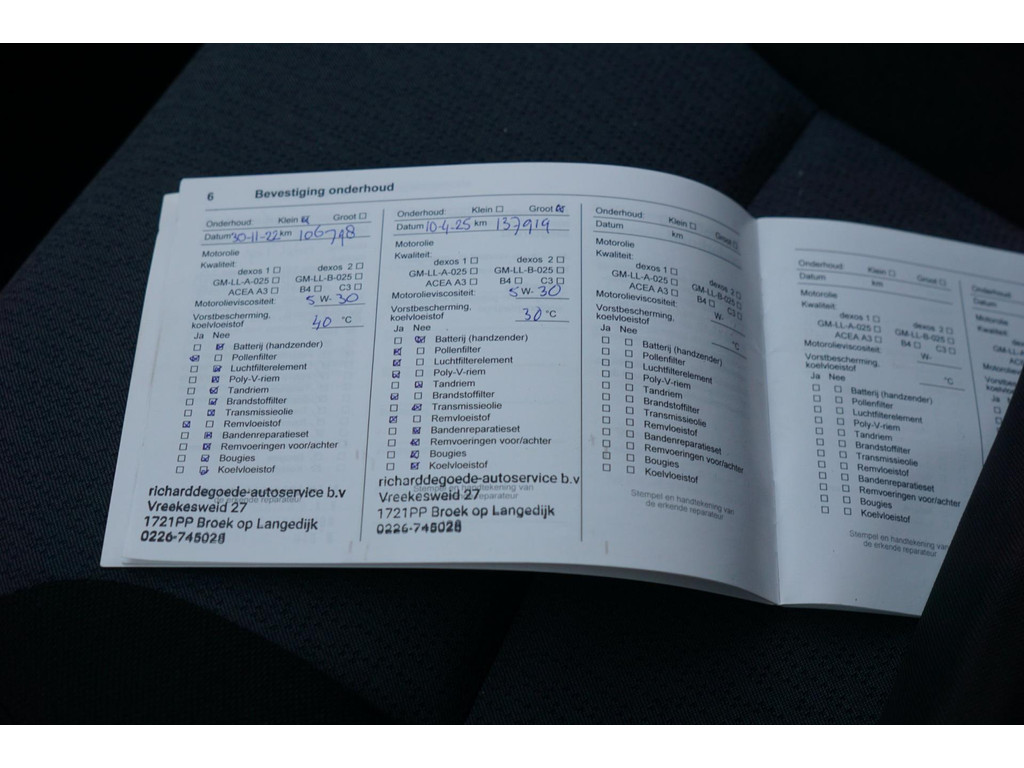 6 Bevestiging onderhoud
Onderhoud: Klein ☒ Groot ☐
Datum 30-11-22 km 106798
Motorolie
Kwaliteit:
dexos 1 ☐ dexos 2 ☐
GM-LL-A-025 ☐ GM-LL-B-025 ☐
ACEA A3 ☐ B4 ☐ C3 ☐
Motorolieviscositeit: 5 W- 30
Vorstbescherming,
koelvloeistof 40 °C
Ja Nee
☐ ☒ Batterij (handzender)
☒ ☐ Pollenfilter
☐ ☒ Luchtfilterelement
☐ ☒ Poly-V-riem
☐ ☒ Tandriem
☐ ☒ Brandstoffilter
☐ ☒ Transmissieolie
☒ ☐ Remvloeistof
☐ ☒ Bandenreparatieset
☐ ☒ Remvoeringen voor/achter
☐ ☒ Bougies
☐ ☒ Koelvloeistof
richarddegoede-autoservice b.v
de erkende reparateur
Vreekesweid 27
1721PP Broek op Langedijk
0226-745028
Onderhoud: Klein ☐ Groot ☒
Datum 10-4-25 km 137919
Motorolie
Kwaliteit:
dexos 1 ☐ dexos 2 ☐
GM-LL-A-025 ☐ GM-LL-B-025 ☐
ACEA A3 ☐ B4 ☐ C3 ☐
Motorolieviscositeit: 5 W- 30
Vorstbescherming,
koelvloeistof 30 °C
Ja Nee
☐ ☒ Batterij (handzender)
☒ ☐ Pollenfilter
☒ ☐ Luchtfilterelement
☒ ☐ Poly-V-riem
☐ ☒ Tandriem
☒ ☐ Brandstoffilter
☐ ☒ Transmissieolie
☒ ☐ Remvloeistof
☐ ☒ Bandenreparatieset
☐ ☒ Remvoeringen voor/achter
☐ ☒ Bougies
☐ ☒ Koelvloeistof
richarddegoede-autoservice b.v
Stempel en handtekening van
Vreekesweid 27
1721PP Broek op Langedijk
0226-745028
Onderhoud: Klein ☐ Groot ☐
Datum km
Motorolie
Kwaliteit:
dexos 1 ☐ dexos 2 ☐
GM-LL-A-025 ☐ GM-LL-B-025 ☐
ACEA A3 ☐ B4 ☐ C3 ☐
Motorolieviscositeit: W-
Vorstbescherming,
koelvloeistof °C
Ja Nee
☐ ☐ Batterij (handzender)
☐ ☐ Pollenfilter
☐ ☐ Luchtfilterelement
☐ ☐ Poly-V-riem
☐ ☐ Tandriem
☐ ☐ Brandstoffilter
☐ ☐ Transmissieolie
☐ ☐ Remvloeistof
☐ ☐ Bandenreparatieset
☐ ☐ Remvoeringen voor/achter
☐ ☐ Bougies
☐ ☐ Koelvloeistof
Stempel en handtekening van
de erkende reparateur
Onderhoud: Klein ☐ Groot ☐
Datum km
Motorolie
Kwaliteit:
dexos 1 ☐ dexos 2 ☐
GM-LL-A-025 ☐ GM-LL-B-025 ☐
ACEA A3 ☐ B4 ☐ C3 ☐
Motorolieviscositeit: W-
Vorstbescherming,
koelvloeistof °C
Ja Nee
☐ ☐ Batterij (handzender)
☐ ☐ Pollenfilter
☐ ☐ Luchtfilterelement
☐ ☐ Poly-V-riem
☐ ☐ Tandriem
☐ ☐ Brandstoffilter
☐ ☐ Transmissieolie
☐ ☐ Remvloeistof
☐ ☐ Bandenreparatieset
☐ ☐ Remvoeringen voor/achter
☐ ☐ Bougies
☐ ☐ Koelvloeistof
Stempel en handtekening van
de erkende reparateur
Datum
Motorolie